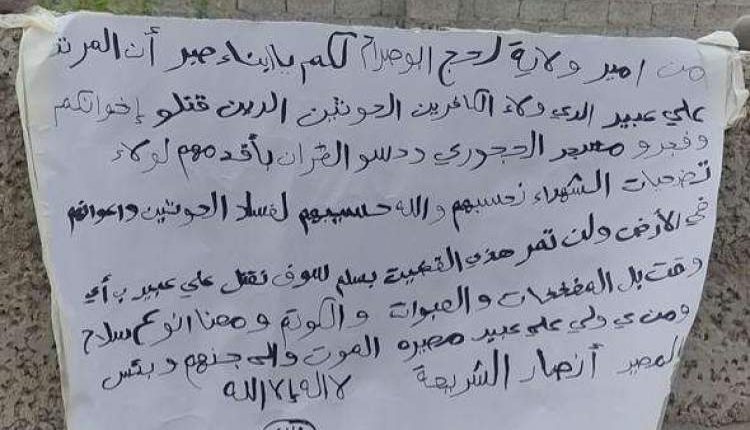 من امير ولاية لحج ابو صرام لكم يا ابناء صبر أن المرتد
علي عبيد الدي ولاء الكافرين الحوثين الدين قتلو إخوانكم
وفجرو مسجد الحجوري ودسو القران بأقدمهم لولاء
تضحيات الشهداء نحسبهم والله حسيبهم لفساد الحوثين واعوانهم
في الأرض ولن تمر هذي القضية بسلم سوف نقتل علي عبيد بأي
وقت بل المفخخات والعبوات والكوتم ومعنا انوع سلاح
ومن ي ولي علي عبيد مصيره الموت والى جنهم وبئس
المصير أنصار الشريعة لا اله الا الله